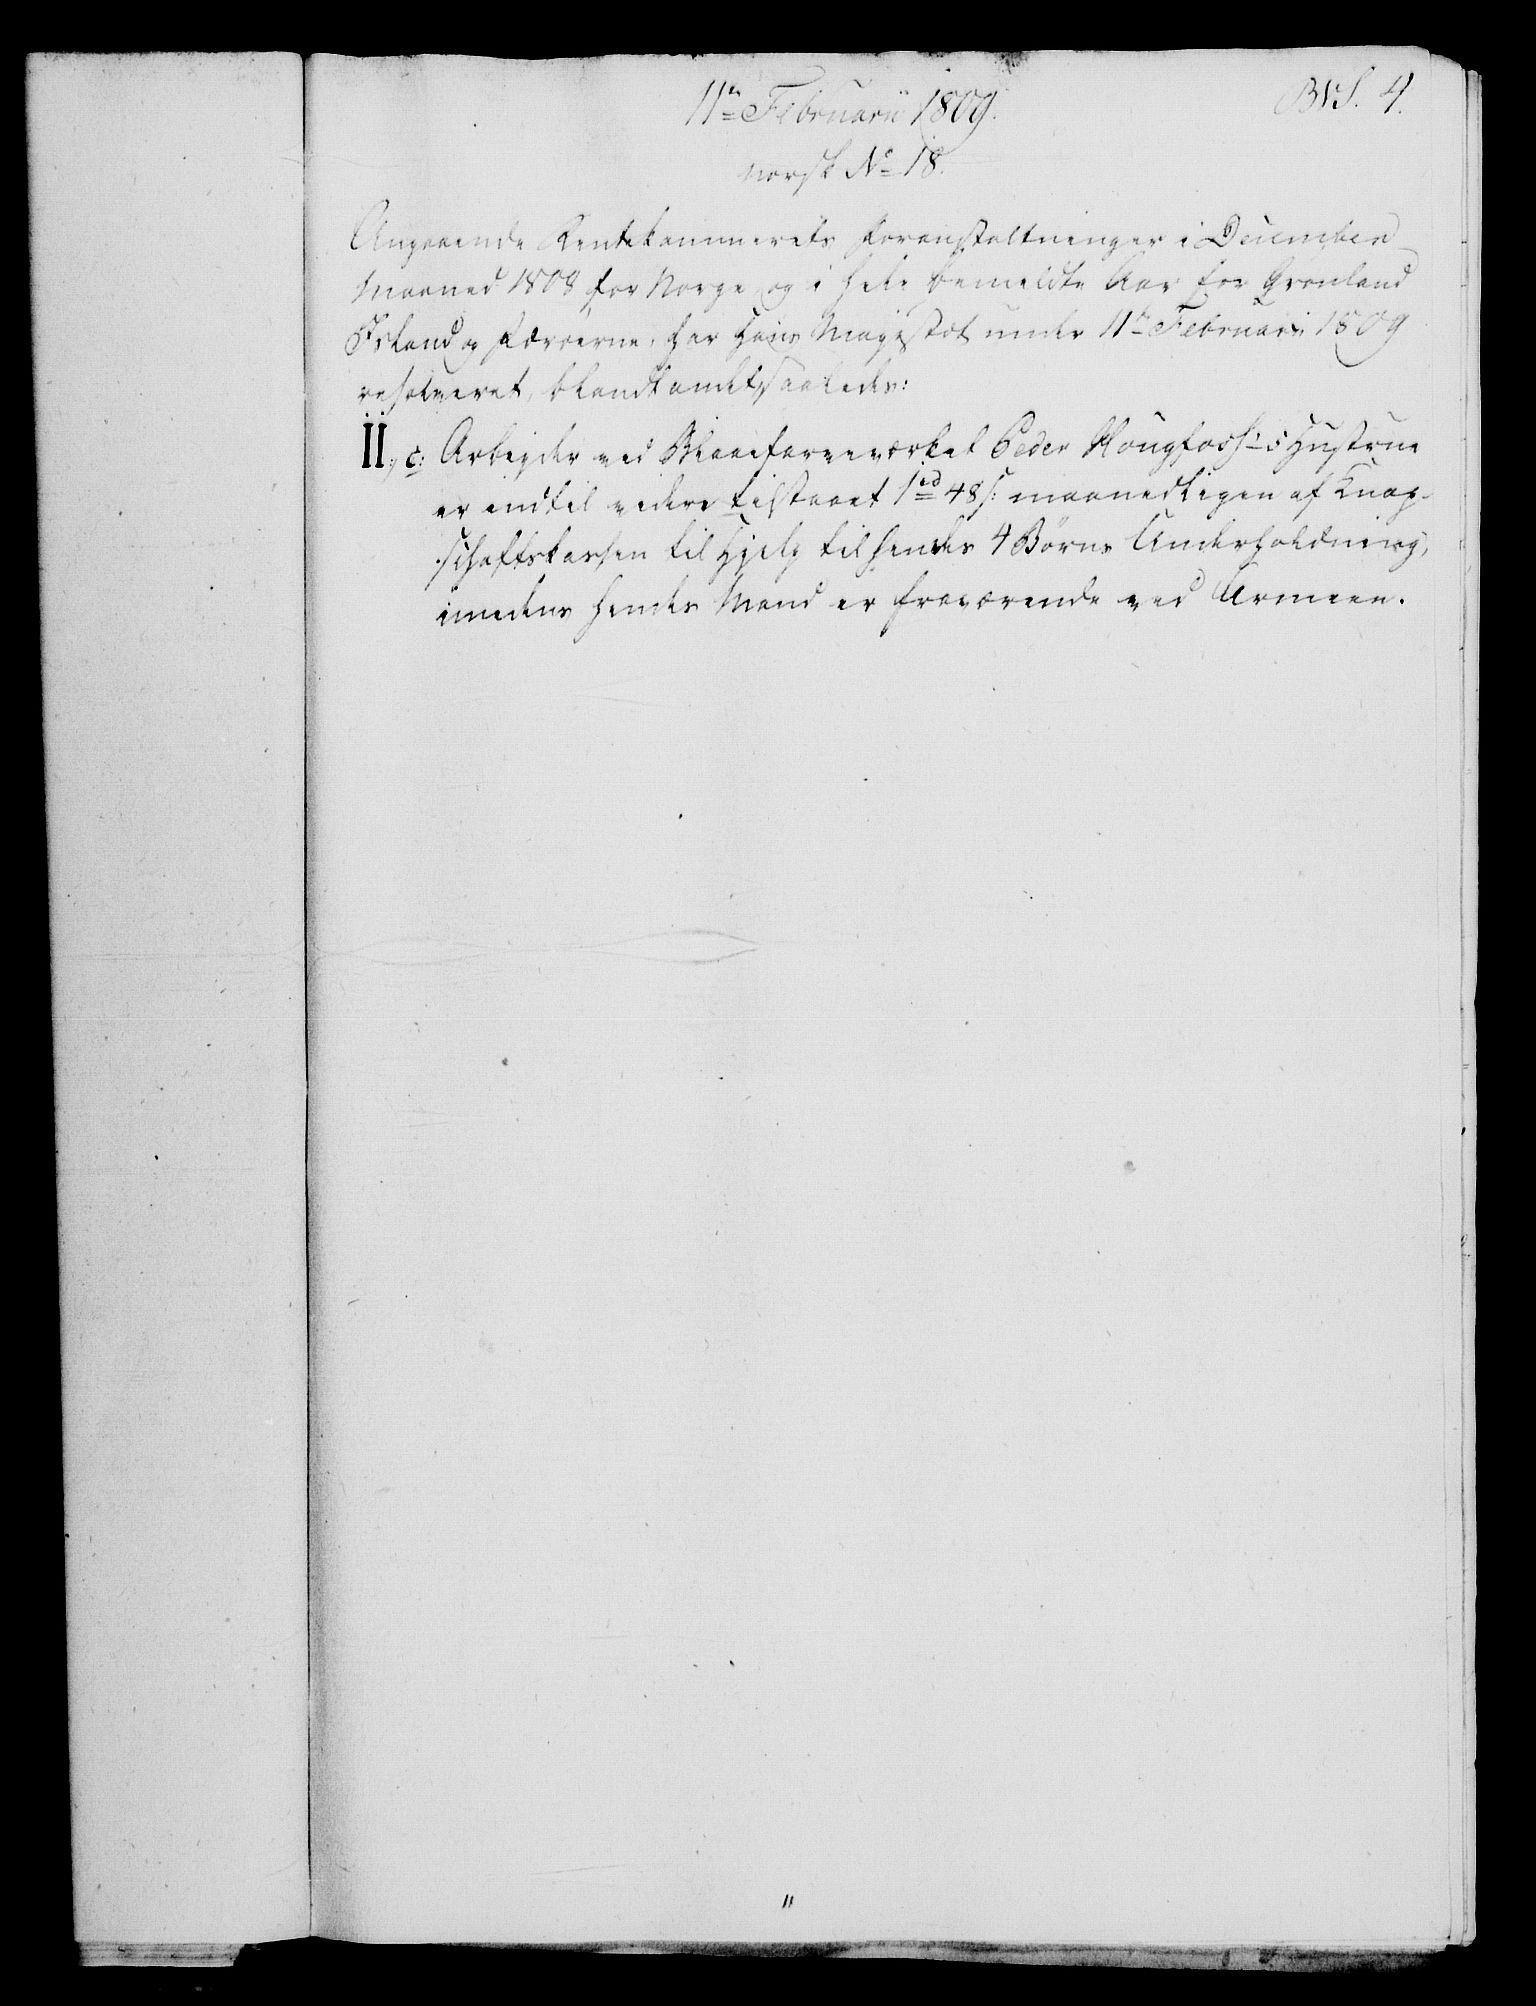 11te Februarii 1809.
BVS. 4.
norsk No 18.
Angaaende Rentekammerets Foranstaltninger i December
Maaned 1808 for Norge og i hele bemeldte Aar for Grønland
Island og Færøerne, har Hans Majestæt under 11te Februari 1809
resolveret, blandt andet, saaledes:
II., c: Arbejder ved Blaafarveværket Peder Hougfoss's Hustrue
er indtil videre tilstaaet 1 rd 48 s: maanedligen af Knap-
schaftskassen til Hjelp til hendes 4 Børns Underholdning,
imedens hendes Mand er fraværende ved Armeen.
"